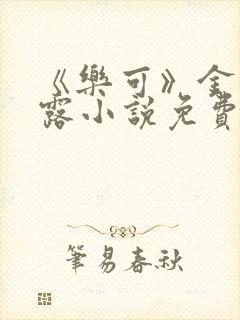 《樂可》金
露小說免費
筆易春秋